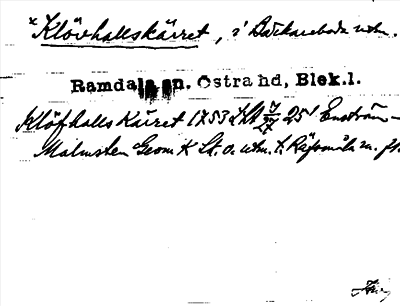 *Klövhallskärret, i Backareboda utm.
Ramdala sn. Östra hd, Blek.l.
Klöfhalls Kärret 1753 LSA 25 Enström-
Malmsten Geom. K St. o. utm. t. Räfsmåla m. fl.